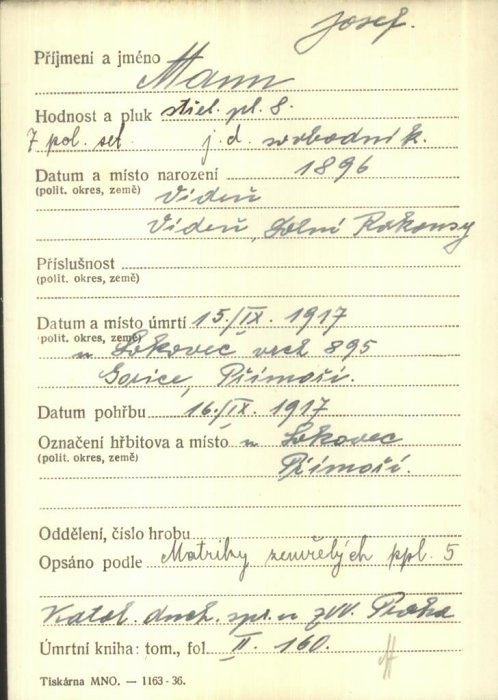 Josef.
Příjmení a jméno Mann
Hodnost a pluk střel. pl. 8.
7 pol. set. j. d. svobodník.
Datum a místo narození 1896
(polit. okres, země) Vídeň
Vídeň, Dolní Rakousy
Příslušnost
(polit. okres, země)
Datum a místo úmrtí 15./IX. 1917
(polit. okres, země)
u Lokovec vrch 895
Gorice, Přímoří.
Datum pohřbu 16./IX. 1917
Označení hřbitova a místo u Lokovec
(polit. okres, země) Přímoří.
Oddělení, číslo hrobu
Opsáno podle Matriky zemřelých ppl. 5
Katol. duch. spr. u zvv. Praha
Úmrtní kniha: tom., fol. II. 160.
Tiskárna MNO. — 1163-36.